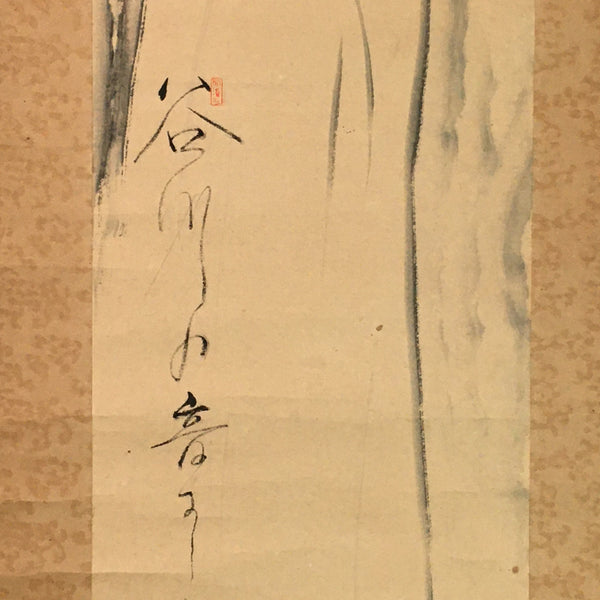 谷川の音